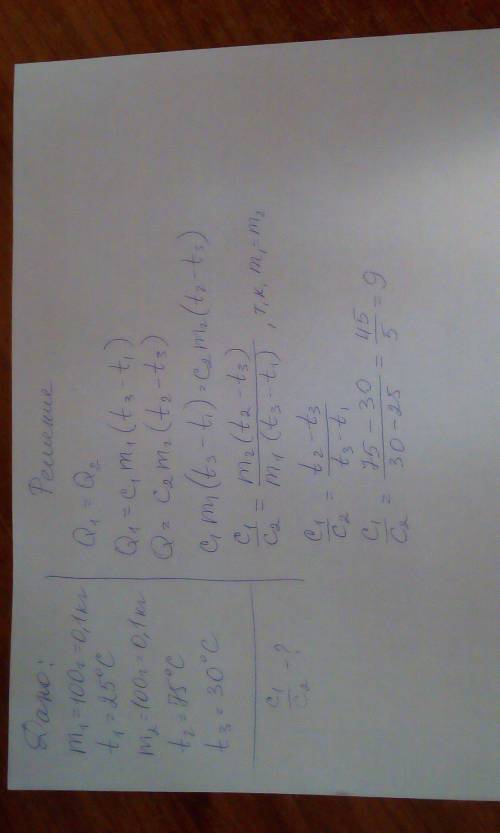 Дано:
m₁=100г=0,1кг
t₁=25°C
m₂=100г=0,1кг
t₂=75°C
t₃=30°C
c₁/c₂ -?
Решение
Q₁=Q₂
Q₁=c₁m₁(t₃-t₁)
Q=c₂m₂(t₂-t₃)
c₁m₁(t₃-t₁)=c₂m₂(t₂-t₃)
c₁/c₂ = m₂(t₂-t₃)/m₁(t₃-t₁), т.к. m₁=m₂
c₁/c₂ = t₂-t₃/t₃-t₁
c₁/c₂ = 75-30/30-25 = 45/5 = 9